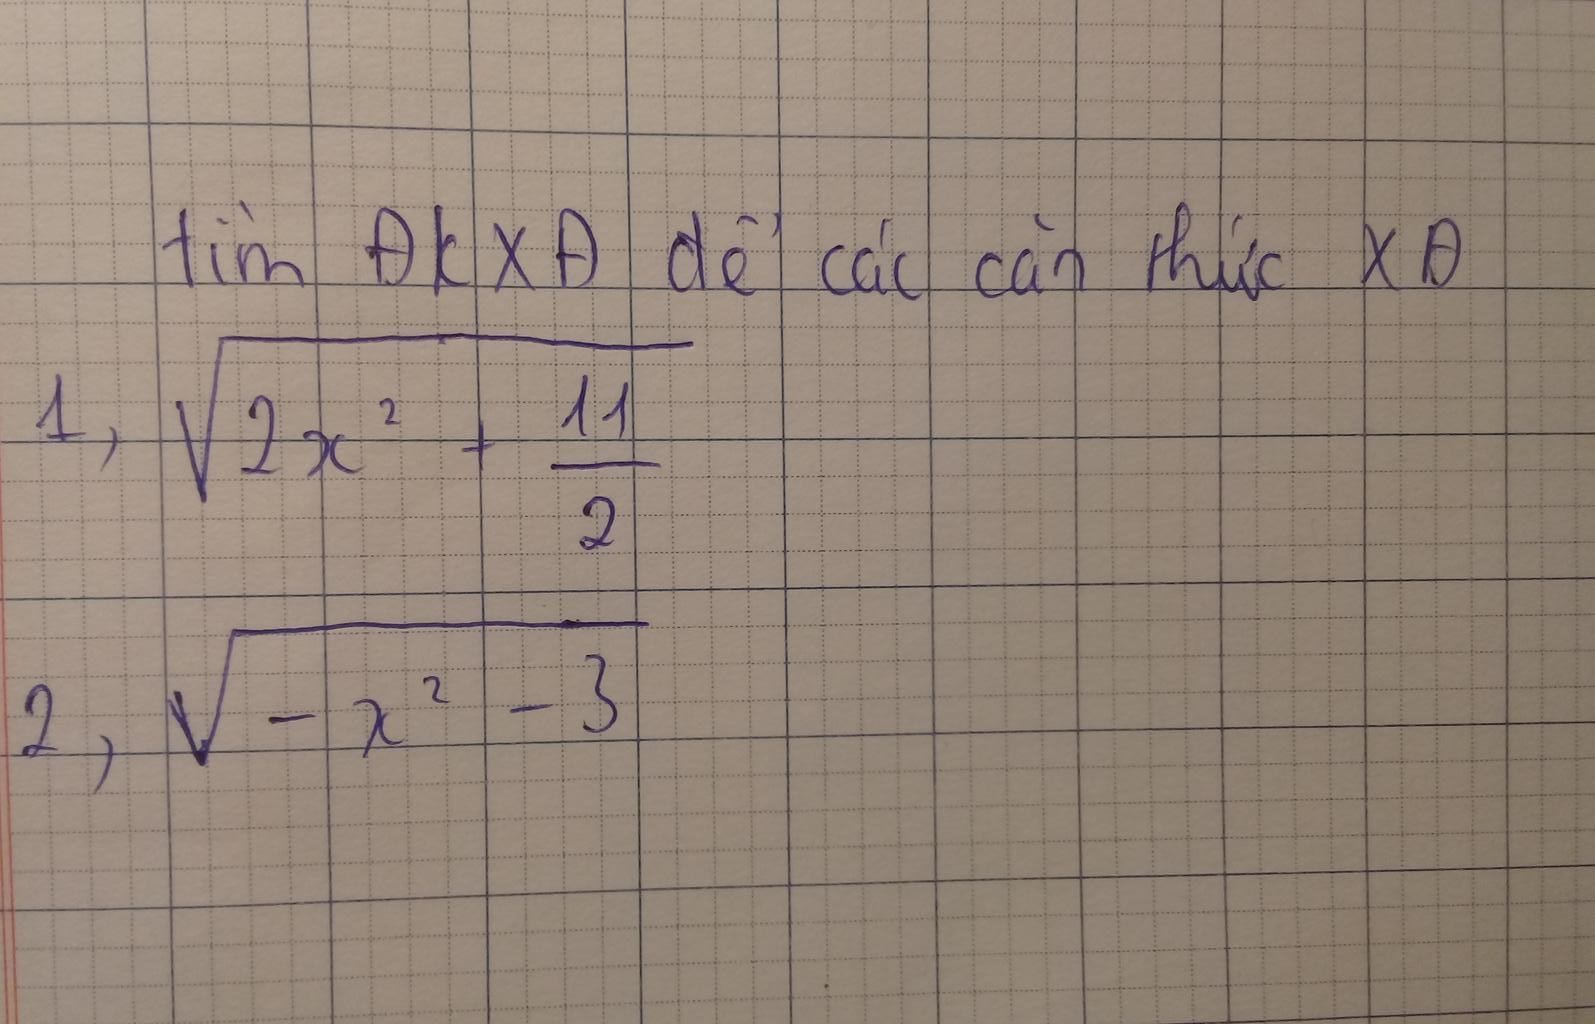 tìm ĐKXĐ để các căn thức XĐ
1, √(2x² + 11/2)
2, √(-x² - 3)